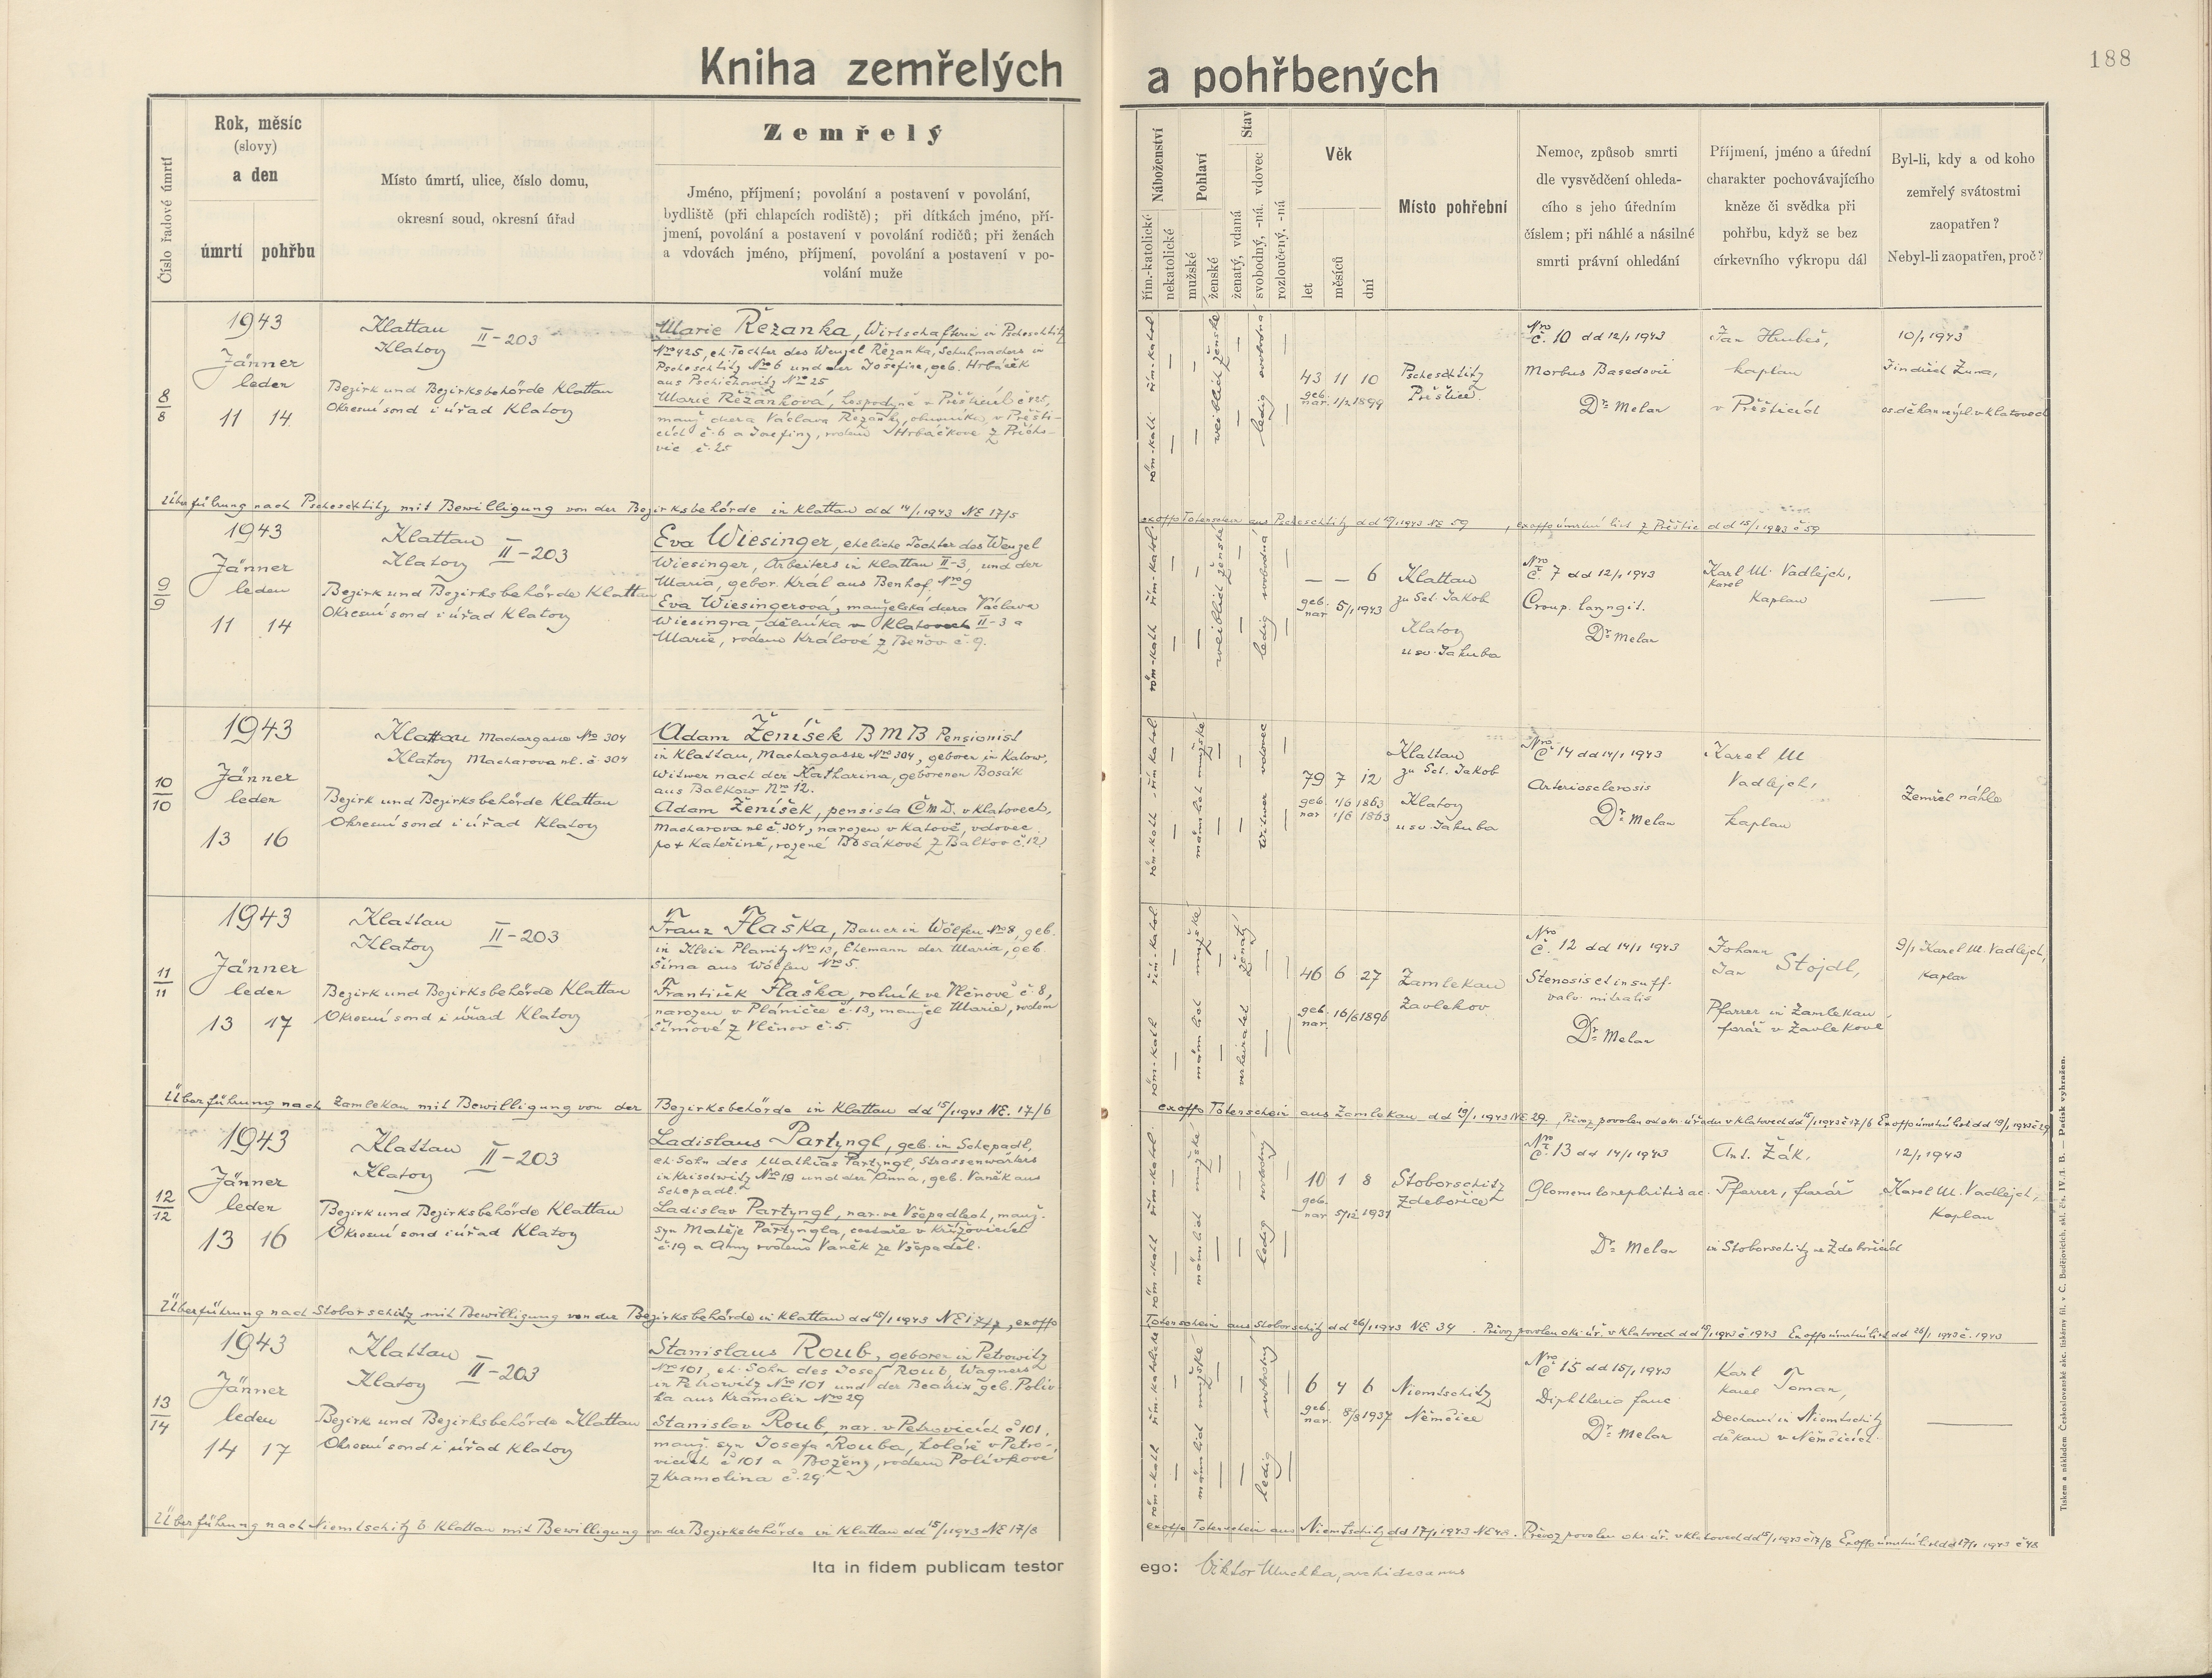 188
Kniha zemřelých a pohřbených
Číslo řadové úmrtí
Rok, měsíc
(slovy)
a den
úmrtí
pohřbu
Místo úmrtí, ulice, číslo domu,
okresní soud, okresní úřad
Zemřelý
Jméno, příjmení; povolání a postavení v povolání,
bydliště (při chlapcích rodiště); při dítkách jméno, pří-
jmení, povolání a postavení v povolání rodičů; při ženách
a vdovách jméno, příjmení, povolání a postavení v po-
volání muže
Náboženství
řím.-katolické
nekatolické
Pohlaví
mužské
ženské
Stav
ženatý, vdaná
svobodný, -ná. vdovec
rozloučený, -ná
Věk
let
měsíců
dní
Místo pohřební
Nemoc, způsob smrti
dle vysvědčení ohleda-
cího s jeho úředním
číslem; při náhlé a násilné
smrti právní ohledání
Příjmení, jméno a úřední
charakter pochovávajícího
kněze či svědka při
pohřbu, když se bez
církevního výkropu dál
Byl-li, kdy a od koho
zemřelý svátostmi
zaopatřen?
Nebyl-li zaopatřen, proč?
8
8
1943
Jänner
leden
11 14
Klattau
Klatovy
II-203
Bezirk und Bezirksbehörde Klattau
Okresní soud i úřad Klatovy
Marie Řezanka, Wirtschafterin in Pscheschtitz
Nro 425, eh. Tochter des Wenzel Řezanka, Schuhmachers in
Pscheschtitz Nro 6 und der Josefine, geb. Hrbáček
aus Pschichowitz Nro 25
Marie Řezanková, hospodyně v Přešticích č 425,
manž. dcera Václava Řezanky, obuvníka v Přešti-
cích č. 6 a Josefiny, rodem Hrbáčkové z Přícho-
vic č. 25
röm.-kath. řím.-katol.
weiblich ženské
ledig svobodná
43 11 10
geb.
nar. 1/2 1899
Pscheschtitz
Přeštice
Nro
č. 10 dd 12/1 1943
Morbus Basedovii
Dr. Melan
Jan Hrubeš,
kaplan
v Přešticích
10/1 1943
Jindřich Žuna,
os. děkan nyní v Klatovech
Überführung nach Pscheschtitz mit Bewilligung von der Bezirksbehörde in Klattau dd 14/1 1943 NE 17/5
exoffo Totenschein aus Pscheschtitz dd 15/1 1943 NE 59, exoffo úmrtní list z Přeštic dd 15/1 1943 č 59
9
9
1943
Jänner
leden
11 14
Klattau
Klatovy
II-203
Bezirk und Bezirksbehörde Klattau
Okresní soud i úřad Klatovy
Eva Wiesinger, eheliche Tochter des Wenzel
Wiesinger, Arbeiters in Klattau II-3, und der
Maria, gebor. Král aus Benhof Nro 9
Eva Wiesingerová, manželská dcera Václava
Wiesingra, dělníka v Klatovech II-3 a
Marie, rodem Králové z Beňov č. 9.
röm.-kath řím.-katol.
weiblich ženské
ledig svobodná
— — 6
geb.
nar 5/1 1943
Klattau
zu Sct. Jakob
Klatovy
u sv. Jakuba
Nro
č. 7 dd 12/1 1943
Croup. laryngit.
Dr. Melan
Karl M. Vadlejch,
Karel
Kaplan
—
10
10
1943
Jänner
leden
13 16
Klattau Machargasse Nro 304
Klatovy Macharova ul. č. 304
Bezirk und Bezirksbehörde Klattau
Okresní soud i úřad Klatovy
Adam Ženíšek BMB Pensionist
in Klattau, Machargasse Nro 304, geboren in Katow,
Witwer nach der Katharina, geborenen Bosák
aus Balkow Nro 12.
Adam Ženíšek, pensista ČMD. v Klatovech,
Macharova ul. č. 304, narozen v Katově, vdovec
po + Kateřině, rozené Bosákové z Balkov č. 12.
röm.-kath. řím.-katol.
männlich mužské
Witwer vdovec
79 7 12
geb. 1/6 1863
nar 1/6 1863
Klattau
zu Sct. Jakob
Klatovy
u sv. Jakuba
Nro
č. 14 dd 14/1 1943
Arteriosclerosis
Dr. Melan
Karel M
Vadlejch,
kaplan
Zemřel náhle
11
11
1943
Jänner
leden
13 17
Klattau
Klatovy
II-203
Bezirk und Bezirksbehörde Klattau
Okresní soud i úřad Klatovy
Franz Flaška, Bauer in Wölfen Nro 8, geb.
in Klein Planitz Nro 13, Ehemann der Maria, geb.
Šíma aus Wölfen Nro 5.
František Flaška, rolník ve Vlčnově č. 8,
narozen v Pláničce č. 13, manžel Marie, rodem
Šímové z Vlčnov č. 5.
röm.-kath řím.-katol.
männlich mužské
verheiratet ženatý
46 6 27
geb.
nar. 16/6 1896
Zamlekau
Zavlekov
Nro
č. 12 dd 14/1 1943
Stenosis et insuff.
valv. mitralis
Dr. Melan
Johann
Jan Stojdl,
Pfarrer in Zamlekau
farář v Zavlekově
9/1 Karel M. Vadlejch,
kaplan
Überführung nach Zamlekau mit Bewilligung von der Bezirksbehörde in Klattau dd 15/1 1943 NE. 17/6
exoffo Totenschein aus Zamlekau dd 19/1 1943 NE 29, Převoz povolen od ok. úřadu v Klatovech dd 15/1 1943 č 17/6 Exoffo úmrtní list dd 19/1 1943 č 29
12
12
1943
Jänner
leden
13 16
Klattau
Klatovy
II-203
Bezirk und Bezirksbehörde Klattau
Okresní soud i úřad Klatovy
Ladislaus Partyngl, geb. in Schepadl,
eh. Sohn des Mathias Partyngl, Strassenwärters
in Krischwitz Nro 19 und der Anna, geb. Vaněk aus
Schepadl.
Ladislav Partyngl, nar. ve Všepadlech, manž.
syn Matěje Partyngla, cestáře v Křížovicích
č. 19 a Anny rodem Vaněk ze Všepadel.
röm.-kath řím.-katol.
männlich mužské
ledig svobodný
10 1 8
geb.
nar 5/12 1931
Stoborschitz
Zdebořice
Nro
č. 13 dd 14/1 1943
Glomerulonephritis ac.
Dr. Melan
Ant. Žák,
Pfarrer, farář
in Stoborschitz ve Zdebořicích
12/1 1943
Karel M. Vadlejch,
Kaplan
Überführung nach Stoborschitz mit Bewilligung von der Bezirksbehörde in Klattau dd 15/1 1943 NE 17/7, exoffo
Totenschein aus Stoborschitz dd 26/1 1943 NE. 34. Převoz povolen ok. úř. v Klatovech dd 15/1 1943 č 1943 Exoffo úmrtní list dd 26/1 1943 č. 1943
13
14
1943
Jänner
leden
14 17
Klattau
Klatovy
II-203
Bezirk und Bezirksbehörde Klattau
Okresní soud i úřad Klatovy
Stanislaus Roub, geboren in Petrowitz
Nro 101, eh. Sohn des Josef Roub, Wagners
in Petrowitz Nro 101 und der Beatrix geb. Polív-
ka aus Kramolin Nro 29
Stanislav Roub, nar. v Petrovicích č 101,
manž. syn Josefa Rouba, koláře v Petro-
vicích č 101 a Boženy, rodem Polívkové
z Kramolína č. 29.
röm.-kath řím.-katolické
männlich mužské
ledig svobodný
6 4 6
geb.
nar. 8/8 1937
Niemtschitz
Němčice
Nro
č 15 dd 15/1 1943
Diphtheria fauc
Dr. Melan
Karl
Karel Toman,
Dechant in Niemtschitz
děkan v Němčicích.
—
Überführung nach Niemtschitz b Klattau mit Bewilligung von der Bezirksbehörde in Klattau dd 15/1 1943 NE 17/8
exoffo Totenschein aus Niemtschitz dd 17/1 1943 NE 48. Převoz povolen ok. úř. v Klatovech dd 15/1 1943 č 17/8 Exoffo úmrtní list dd 17/1 1943 č 48
Ita in fidem publicam testor ego: Viktor Muchka, archidecanus
Tiskem a nákladem Československé akc. tiskárny fil. v Č. Budějovicích, skl. čís. IV./1. B. — Patisk vyhražen.